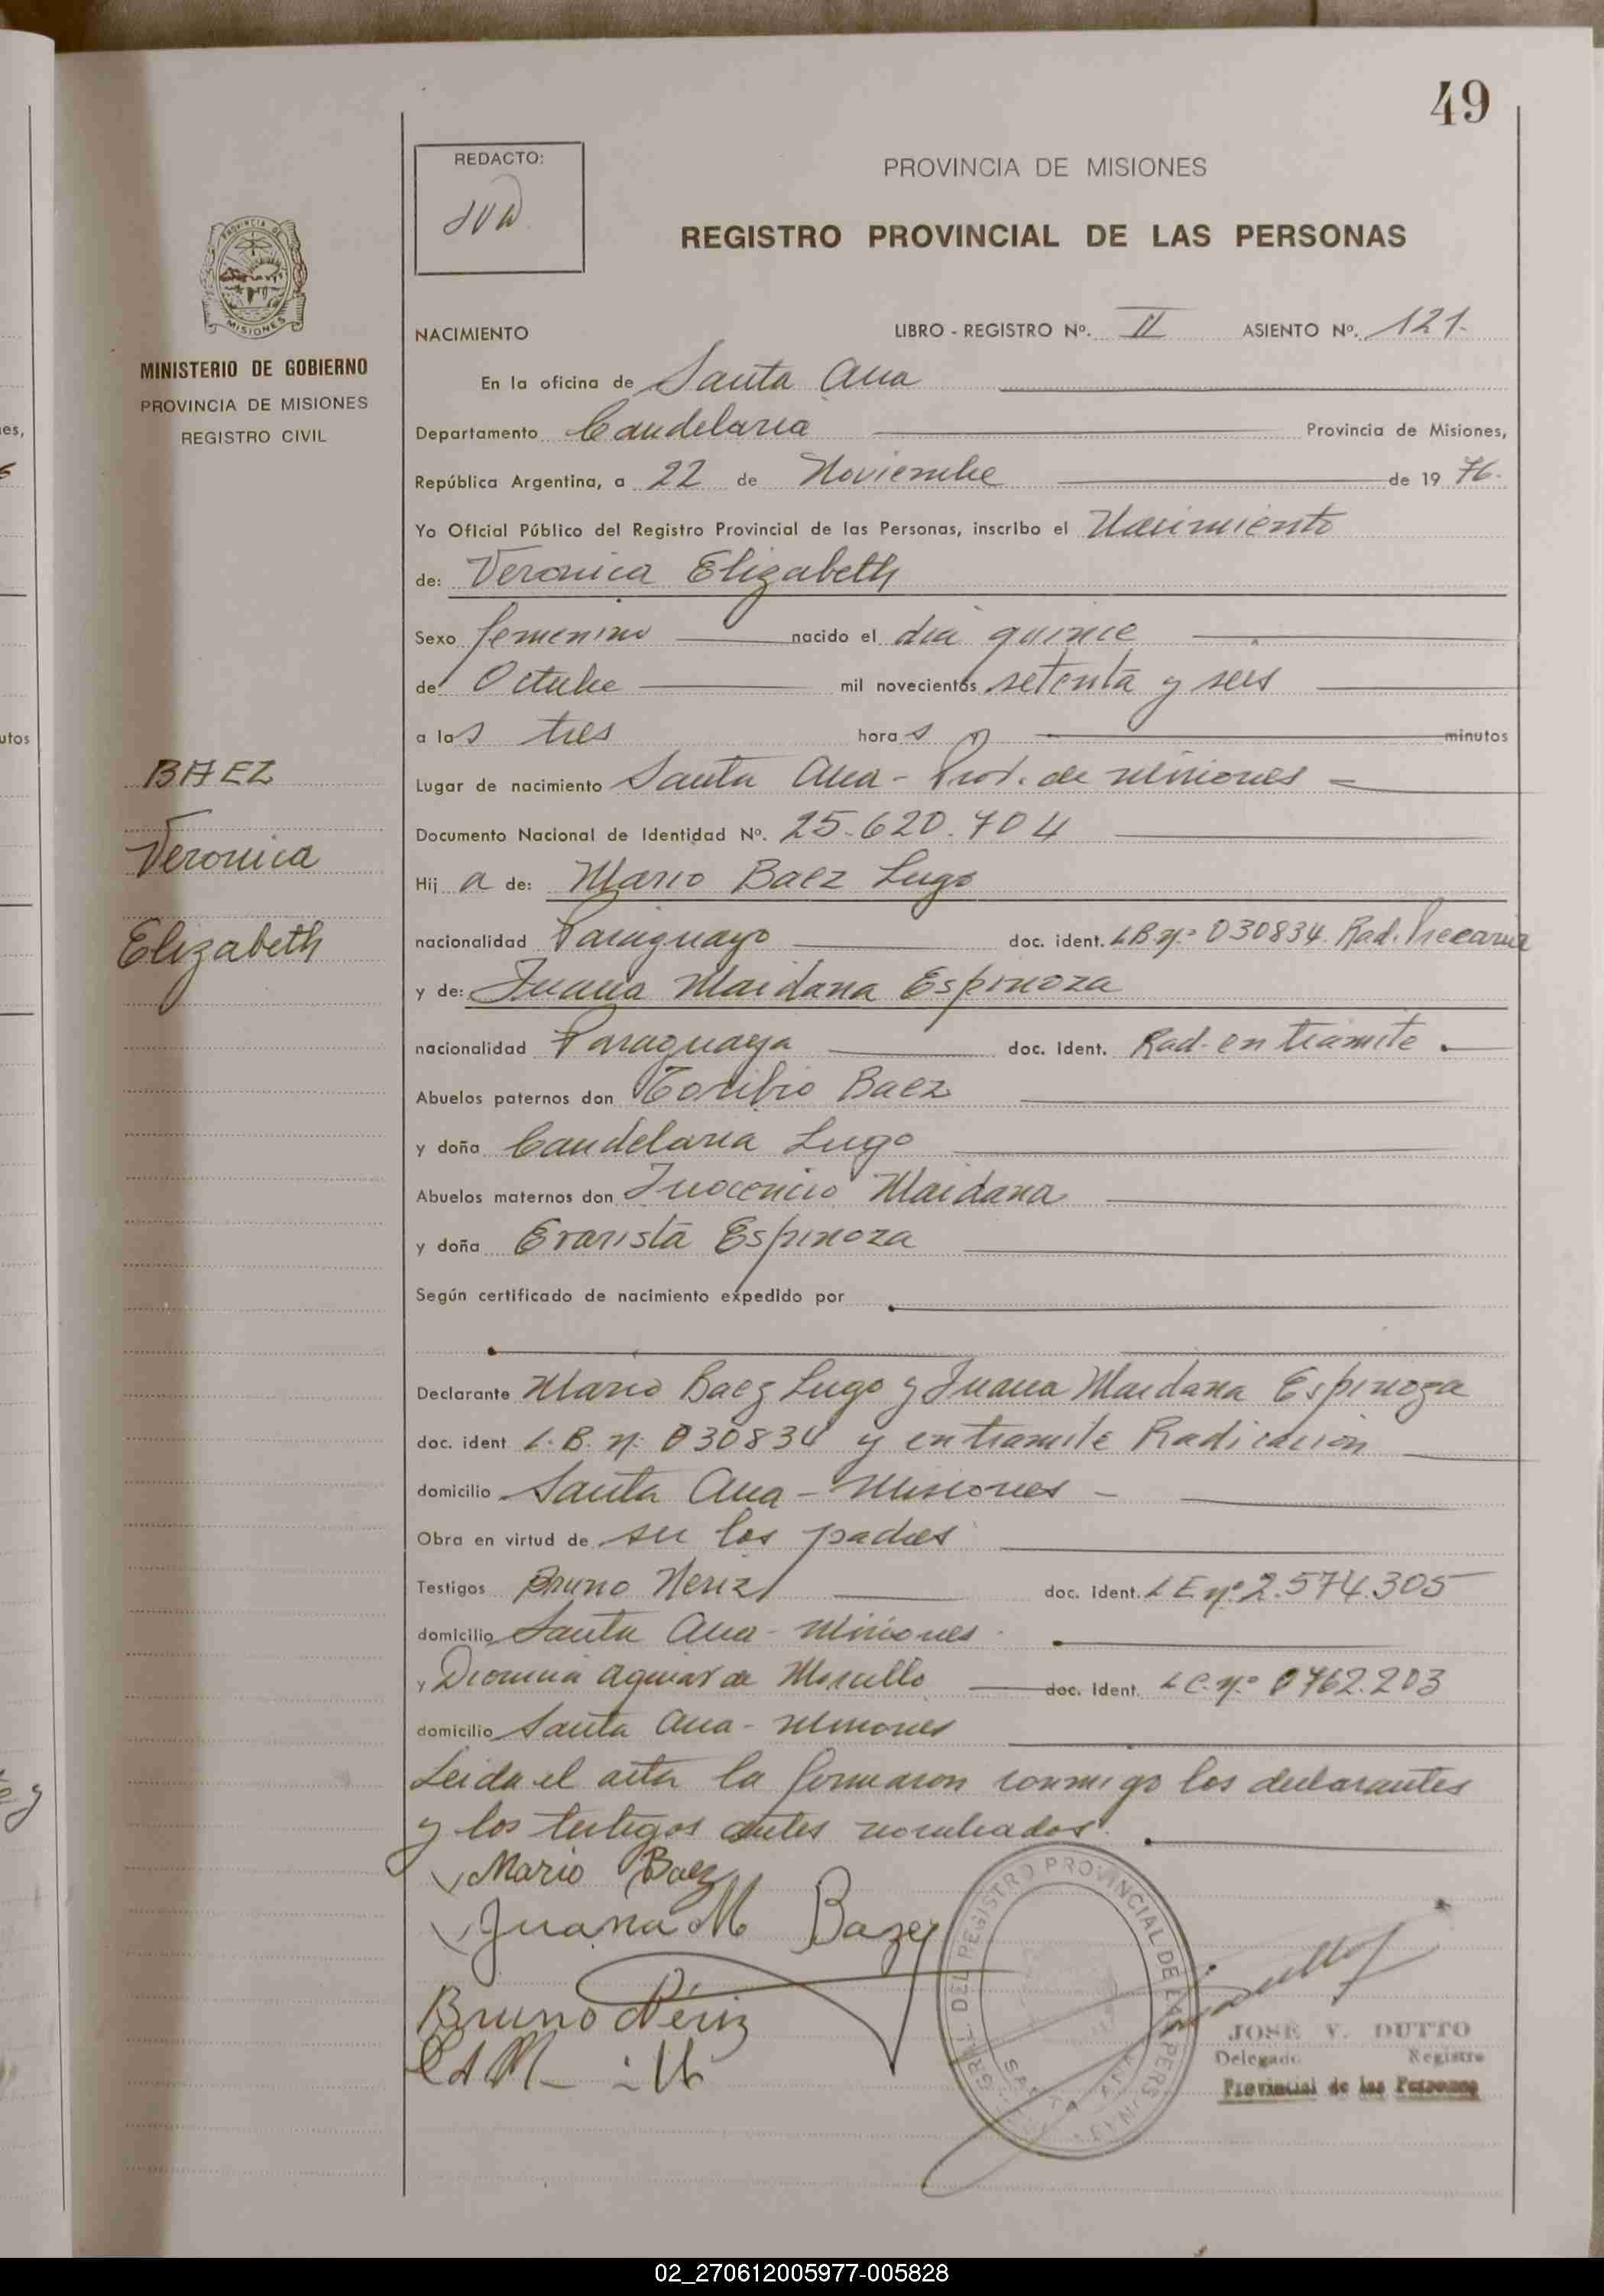 49
REDACTO:
JVD
PROVINCIA DE MISIONES
REGISTRO PROVINCIAL DE LAS PERSONAS
PROVINCIA DE
MISIONES
MINISTERIO DE GOBIERNO
PROVINCIA DE MISIONES
REGISTRO CIVIL
NACIMIENTO LIBRO - REGISTRO Nº. II ASIENTO Nº. 121.
En la oficina de Santa Ana
Departamento Candelaria Provincia de Misiones,
República Argentina, a 22 de Noviembre de 19 76.
Yo Oficial Público del Registro Provincial de las Personas, inscribo el Nacimiento
de: Veronica Elizabeth
Sexo femenino nacido el día quince
de Octubre mil novecientos setenta y seis
a las tres horas y minutos
BAEZ
Veronica
Elizabeth
Lugar de nacimiento Santa Ana - Prov. de Misiones
Documento Nacional de Identidad Nº. 25.620.704
Hij a de: Mario Baez Lugo
nacionalidad Paraguayo doc. ident. LB nº 030834. Rad. Precaria
y de: Juana Maidana Espinoza
nacionalidad Paraguaya doc. Ident. Rad. en tramite.
Abuelos paternos don Toribio Baez
y doña Candelaria Lugo
Abuelos maternos don Inocencio Maidana
y doña Evarista Espinoza
Según certificado de nacimiento expedido por
Declarante Mario Baez Lugo y Juana Maidana Espinoza
doc. ident L.B. nº 030834 y en tramite Radicación
domicilio Santa Ana - Misiones -
Obra en virtud de ser los padres
Testigos Bruno Neriz doc. ident. LE nº 2.574.305
domicilio Santa Ana - Misiones.
y Dionicia Aguiar de Morullo doc. Ident. LC. nº 0762.203
domicilio Santa Ana - Misiones
Leida el acta la firmaron conmigo los declarantes
y los testigos antes nombrados.
Mario Baez
Juana M Bazez
Bruno Nériz
REGISTRO PROVINCIAL DE LAS PERSONAS
SANTA ANA
JOSE V. DUTTO
Delegado Registro
Provincial de las Personas
02_270612005977-005828